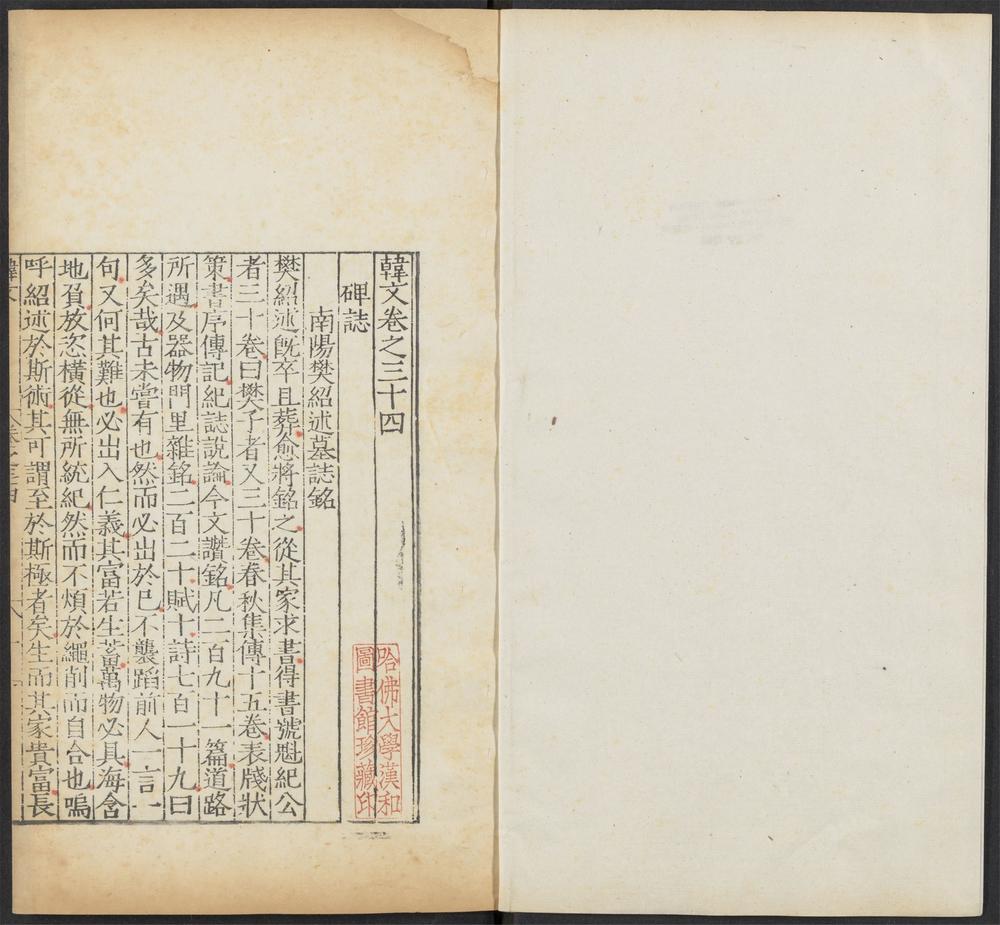 韓文卷之三十四
碑誌
南陽樊紹述墓誌銘
樊紹述既卒且葬愈將銘之從其家求書得書號魁紀公
者三十卷曰樊子者又三十卷春秋集傳十五卷表牋狀
策書序傳記紀誌說論今文讚銘凡二百九十一篇道路
所遇及器物門里雜銘二百二十賦十詩七百一十九曰
多矣哉古未嘗有也然而必出於已不襲蹈前人一言一
句又何其難也必出入仁義其富若生蓄萬物必具海含
地負放恣橫從無所統紀然而不煩於繩削而自合也嗚
呼紹述於斯術其可謂至於斯極者矣生而其家貴富長
哈佛大學漢和
圖書館珍藏印